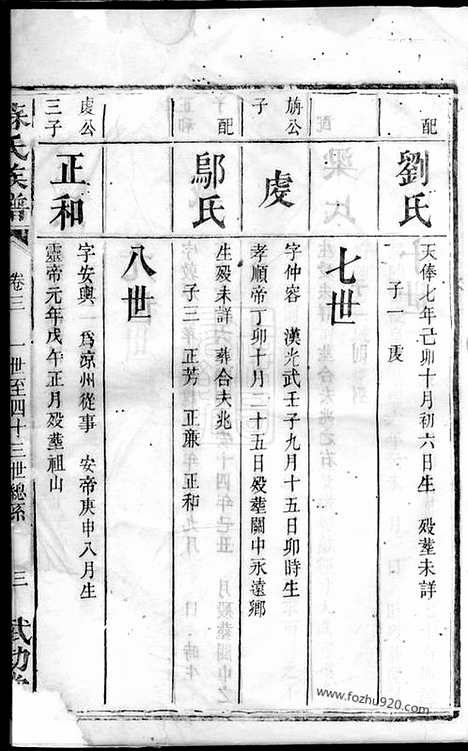 配
劉氏
天俸七年己卯十月初六日生　殁塟未詳
子一　虔
七世
旃公
子
虔
字仲容　漢光武壬子九月十五日卯時生
孝順帝丁卯十月二十五日殁塟關中永遠鄉
配
鄔氏
生殁未詳　葬合夫兆
子三　正芳　正廉　正和
八世
虔公
三子
正和
字安輿　為涼州從事　安帝庚申八月生
靈帝元年戊午正月殁塟祖山
蘇氏族譜
卷三　一世至四十三世總系
三
武功
https://www.fozhu920.com/